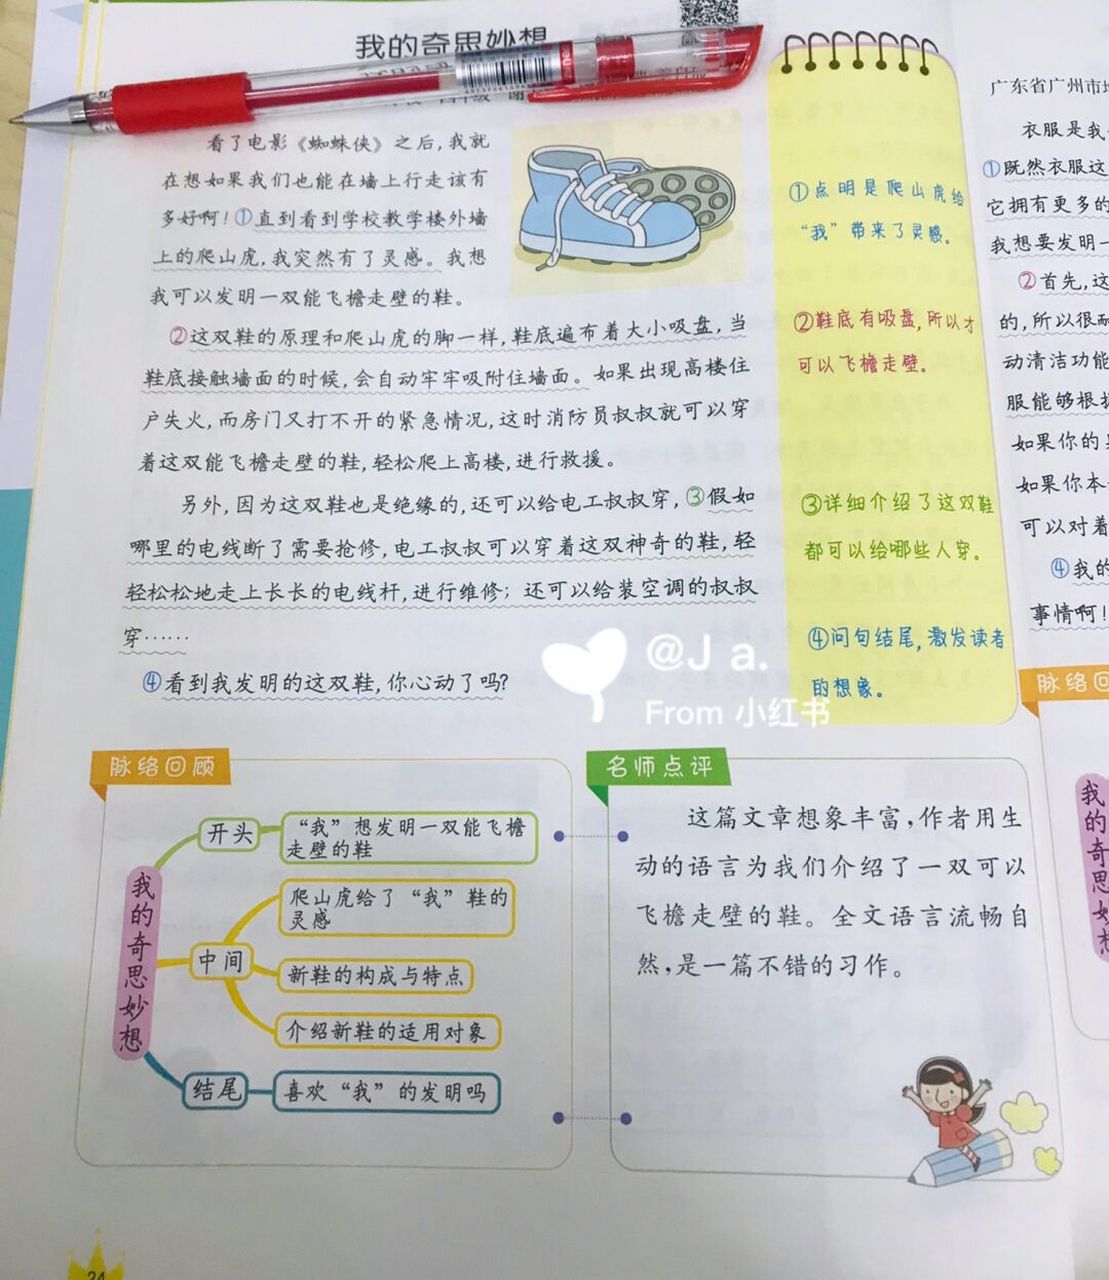 我的奇思妙想
看了电影《蜘蛛侠》之后，我就
在想如果我们也能在墙上行走该有
多好啊！①直到看到学校教学楼外墙
上的爬山虎，我突然有了灵感。我想
我可以发明一双能飞檐走壁的鞋。
②这双鞋的原理和爬山虎的脚一样，鞋底遍布着大小吸盘，当
鞋底接触墙面的时候，会自动牢牢吸附住墙面。如果出现高楼住
户失火，而房门又打不开的紧急情况，这时消防员叔叔就可以穿
着这双能飞檐走壁的鞋，轻松爬上高楼，进行救援。
另外，因为这双鞋也是绝缘的，还可以给电工叔叔穿，③假如
哪里的电线断了需要抢修，电工叔叔可以穿着这双神奇的鞋，轻
轻松松地走上长长的电线杆，进行维修；还可以给装空调的叔叔
穿……
④看到我发明的这双鞋，你心动了吗？
①点明是爬山虎给
“我”带来了灵感。
②鞋底有吸盘，所以才
可以飞檐走壁。
③详细介绍了这双鞋
都可以给哪些人穿。
④问句结尾，激发读者
的想象。
@J a.
From 小红书
脉络回顾
我的奇思妙想
开头
“我”想发明一双能飞檐
走壁的鞋
中间
爬山虎给了“我”鞋的
灵感
新鞋的构成与特点
介绍新鞋的适用对象
结尾
喜欢“我”的发明吗
名师点评
这篇文章想象丰富，作者用生
动的语言为我们介绍了一双可以
飞檐走壁的鞋。全文语言流畅自
然，是一篇不错的习作。
广东省广州市
衣服是我
①既然衣服这
它拥有更多的
我想要发明一
②首先，这
的，所以很耐
动清洁功能
服能够根据
如果你的
如果你本
可以对着
④我的
事情啊！
脉络回
我的奇思妙想
34